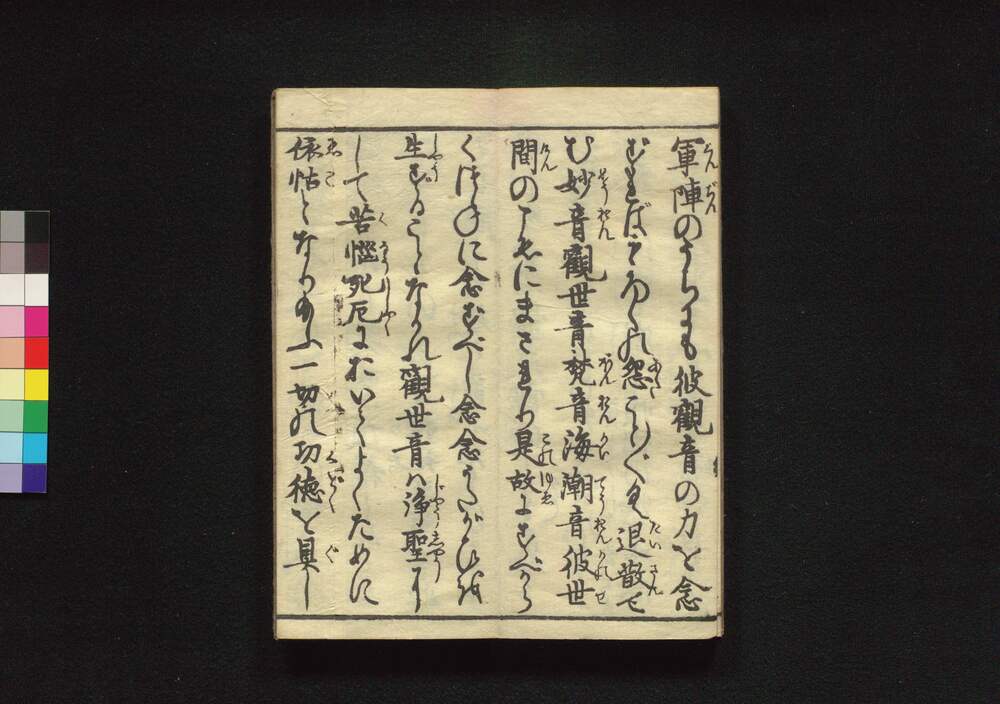 軍陣のうちにも彼觀音の力を念
ずればもろ〳〵の怨こと〴〵く退散せ
む妙音觀世音梵音海潮音彼世
間のこゑにまされり是故にすべから
くつねに念ずべし念念うたがひを
生ずることなかれ觀世音は浄聖に
して苦惱死厄においてよくために
依怙となりたまふ一切の功徳を具し